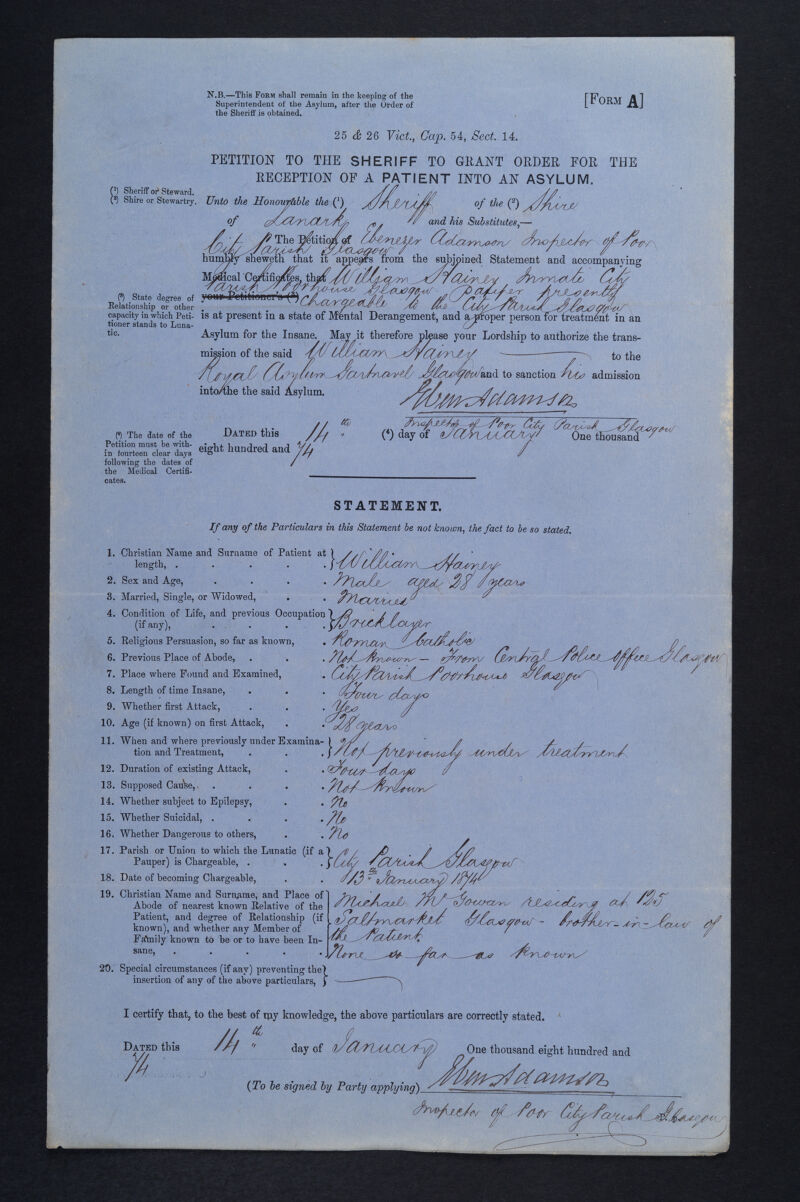 N.B.—This Form shall remain in the keeping of the
Superintendent of the Asylum, after the Order of
the Sheriff is obtained.
[Form A]
25 & 26 Vict., Cap. 54, Sect. 14.
PETITION TO THE SHERIFF TO GRANT ORDER FOR THE
RECEPTION OF A PATIENT INTO AN ASYLUM.
(1) Sheriff or Steward.
(2) Shire or Stewartry.
Unto the Honourable the (1) Sheriff of the (2) Shire
of Lanark and his Substitutes,—
The Petition of Ebenezer Adamson Inspector of Poor
City Parish Glasgow
humbly sheweth that it appears from the subjoined Statement and accompanying
Medical Certificates, that William Hainey Inmate City
Parish Poorhouse Glasgow Pauper presently
(3) State degree of
Relationship or other
capacity in which Peti-
tioner stands to Luna-
tic.
your Petitioner's (3) Chargeable to the City Parish Glasgow
is at present in a state of Mental Derangement, and a proper person for treatment in an
Asylum for the Insane. May it therefore please your Lordship to authorize the trans-
mission of the said William Hainey to the
Royal Asylum Gartnavel Glasgow and to sanction his admission
into the said Asylum.
Eben Adamson
Inspector of Poor City Parish Glasgow
(4) The date of the
Petition must be with-
in fourteen clear days
following the dates of
the Medical Certifi-
cates.
Dated this 14th (4) day of January One thousand
eight hundred and 74
STATEMENT.
If any of the Particulars in this Statement be not known, the fact to be so stated.
1. Christian Name and Surname of Patient at
length, . . . . . William Hainey
2. Sex and Age, . . . . Male aged 28 years
3. Married, Single, or Widowed, . . Married
4. Condition of Life, and previous Occupation
(if any), . . . . . Bricklayer
5. Religious Persuasion, so far as known, . Roman Catholic
6. Previous Place of Abode, . . . Not Known - From Central Police Office Glasgow
7. Place where Found and Examined, . City Parish Poorhouse Glasgow
8. Length of time Insane, . . . Four days
9. Whether first Attack, . . . Yes
10. Age (if known) on first Attack, . . 28 years
11. When and where previously under Examina-
tion and Treatment, . . . Not previously under treatment
12. Duration of existing Attack, . . Four days
13. Supposed Cause, . . . . Not Known
14. Whether subject to Epilepsy, . . No
15. Whether Suicidal, . . . . No
16. Whether Dangerous to others, . . No
17. Parish or Union to which the Lunatic (if a
Pauper) is Chargeable, . . . City Parish Glasgow
18. Date of becoming Chargeable, . . 13th January 1874
19. Christian Name and Surname, and Place of
Abode of nearest known Relative of the
Patient, and degree of Relationship (if
known), and whether any Member of
Family known to be or to have been In-
sane, . . . . . .
Michael McGowan residing at 125
Saltmarket Glasgow - brother-in-law of
the Patient.
None so far as known
20. Special circumstances (if any) preventing the
insertion of any of the above particulars,
I certify that, to the best of my knowledge, the above particulars are correctly stated.
Dated this 14th day of January One thousand eight hundred and
74
(To be signed by Party applying) Eben Adamson
Inspector of Poor City Parish Glasgow